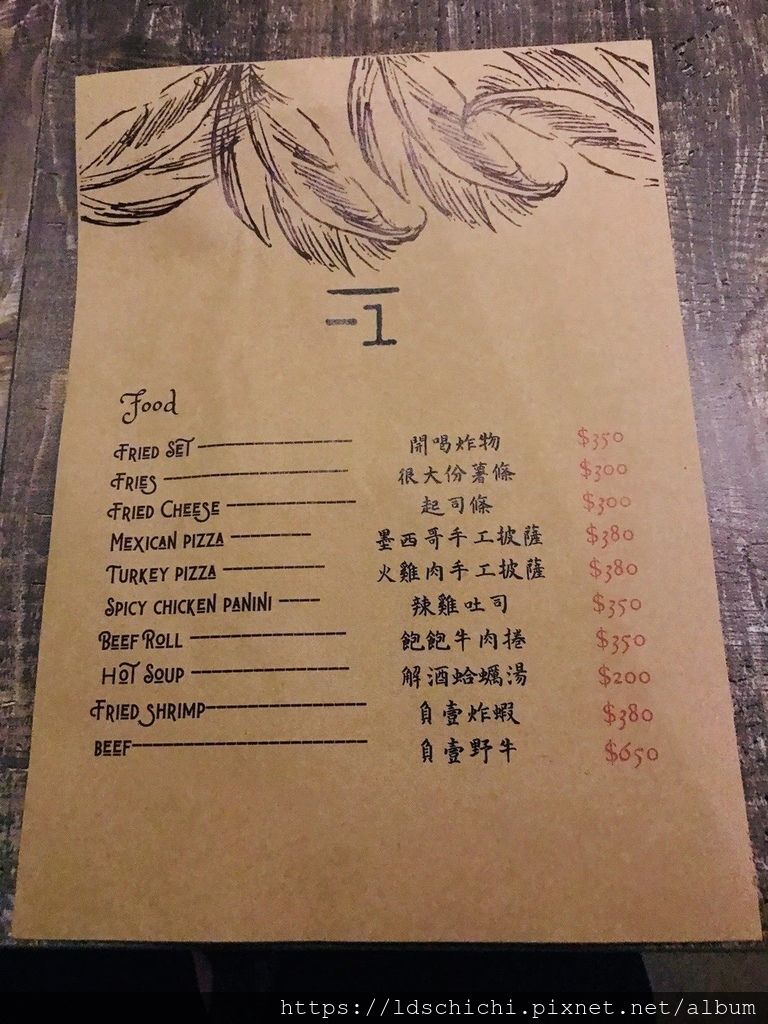 -1
Food
Fried Set ---------------- 開喝炸物 $350
Fries ------------------- 很大份薯條 $300
Fried Cheese ------------- 起司條 $300
Mexican pizza -------- 墨西哥手工披薩 $380
Turkey pizza ---------- 火雞肉手工披薩 $380
Spicy chicken panini ---- 辣雞吐司 $350
Beef Roll ---------------- 飽飽牛肉捲 $350
Hot Soup ---------------- 解酒蛤蠣湯 $200
Fried shrimp---------------- 負壹炸蝦 $380
beef------------------------ 負壹野牛 $650
https://ldschichi.pixnet.net/album